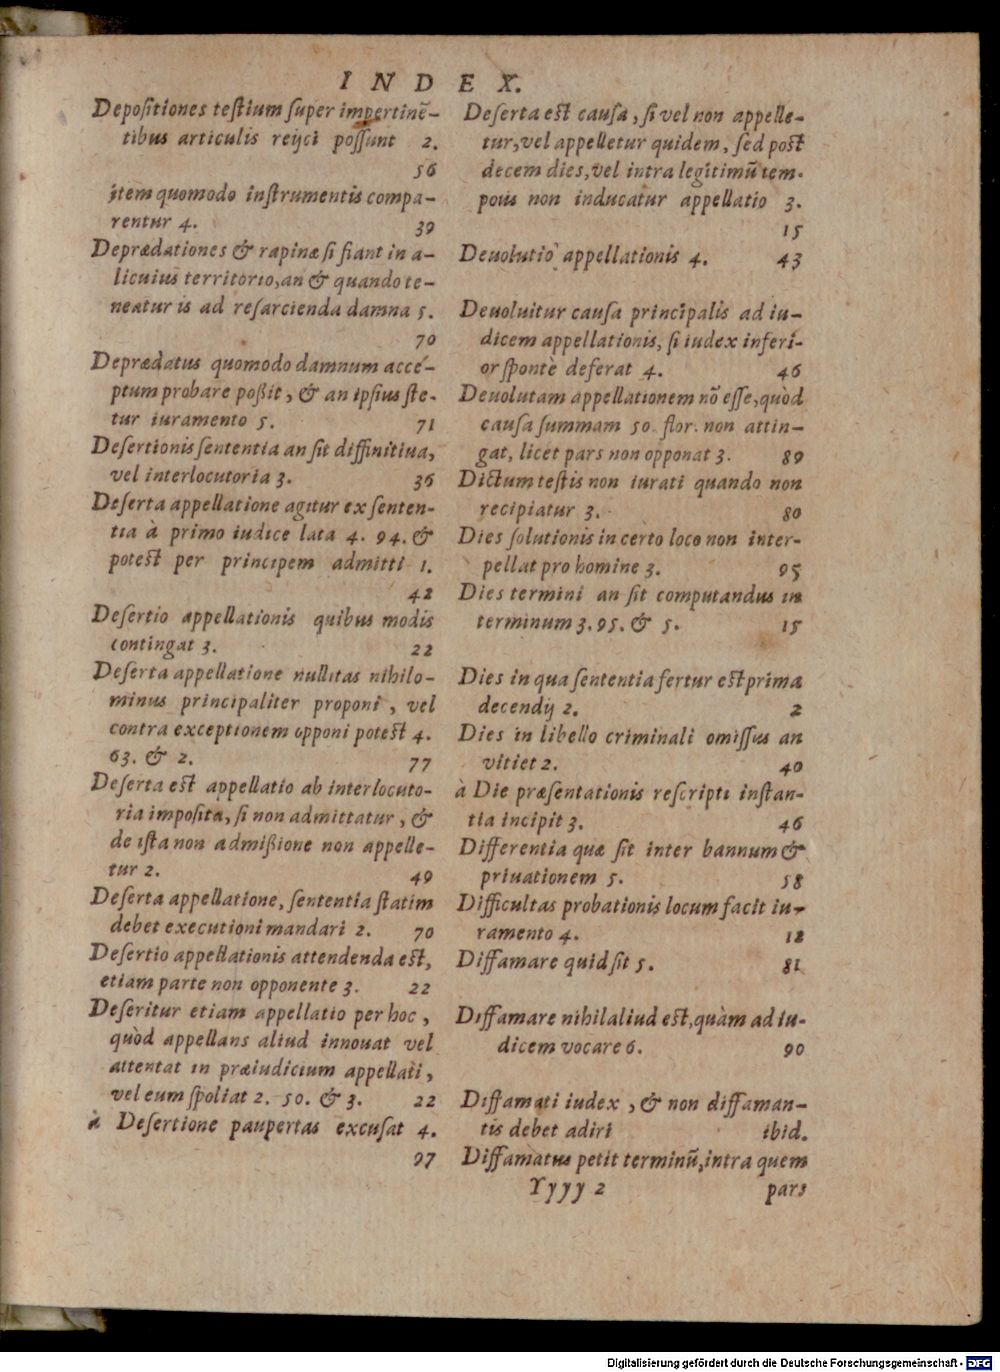 INDEX.
Depoſitiones teſtium ſuper impertinẽ-
tibus articulis reijci poſſunt 2.
56
item quomodo inſtrumentis compa-
rentur 4. 39
Deprædationes & rapinæ ſi fiant in a-
licuius territorio, an & quando te-
neatur is ad reſarcienda damna 5.
70
Deprædatus quomodo damnum acce-
ptum probare poßit, & an ipſius ſte-
tur iuramento 5. 71
Deſertionis ſententia an ſit diffinitiua,
vel interlocutoria 3. 36
Deſerta appellatione agitur ex ſenten-
tia à primo iudice lata 4. 94. &
poteſt per principem admitti 1.
42
Deſertio appellationis quibus modis
contingat 3. 22
Deſerta appellatione nullitas nihilo-
minus principaliter proponi, vel
contra exceptionem opponi poteſt 4.
63. & 2. 77
Deſerta eſt appellatio ab interlocuto-
ria impoſita, ſi non admittatur, &
de iſta non admißione non appelle-
tur 2. 49
Deſerta appellatione, ſententia ſtatim
debet executioni mandari 2. 70
Deſertio appellationis attendenda eſt,
etiam parte non opponente 3. 22
Deſeritur etiam appellatio per hoc,
quòd appellans aliud innouat vel
attentat in præiudicium appellati,
vel eum ſpoliat 2. 50. & 3. 22
à Deſertione paupertas excuſat 4.
97
Deſerta eſt cauſa, ſi vel non appelle-
tur, vel appelletur quidem, ſed poſt
decem dies, vel intra legitimũ tem-
pous non inducatur appellatio 3.
15
Deuolutio appellationis 4. 43
Deuoluitur cauſa principalis ad iu-
dicem appellationis, ſi iudex inferi-
or ſpontè deferat 4. 46
Deuolutam appellationem nõ eſſe, quòd
cauſa ſummam 50. flor. non attin-
gat, licet pars non opponat 3. 89
Dictum teſtis non iurati quando non
recipiatur 3. 80
Dies ſolutionis in certo loco non inter-
pellat pro homine 3. 95
Dies termini an ſit computandus in
terminum 3. 95. & 5. 15
Dies in qua ſententia fertur eſt prima
decendij 2. 2
Dies in libello criminali omiſſus an
vitiet 2. 40
à Die præſentationis reſcripti inſtan-
tia incipit 3. 46
Differentia quæ ſit inter bannum &
priuationem 5. 58
Difficultas probationis locum facit iu-
ramento 4. 12
Diffamare quid ſit 5. 81
Diffamare nihil aliud eſt, quàm ad iu-
dicem vocare 6. 90
Diffamati iudex, & non diffaman-
tis debet adiri ibid.
Diffamatus petit terminũ, intra quem
Yyyy 2 pars
Digitalisierung gefördert durch die Deutsche Forschungsgemeinschaft - DFG